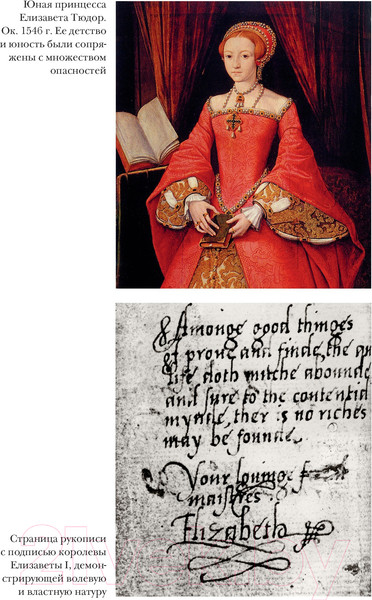 Юная принцесса
Елизавета Тюдор.
Ок. 1546 г. Ее детство
и юность были сопря-
жены с множеством
опасностей
& Amonge good thinges
I prove and finde, the
life doth muche abounde
and sure to the contentid
mynde, ther is no riches
may be founde.
Your lovinge
maistres
Elizabeth
Страница рукописи
с подписью королевы
Елизаветы I, демон-
стрирующей волевую
и властную натуру